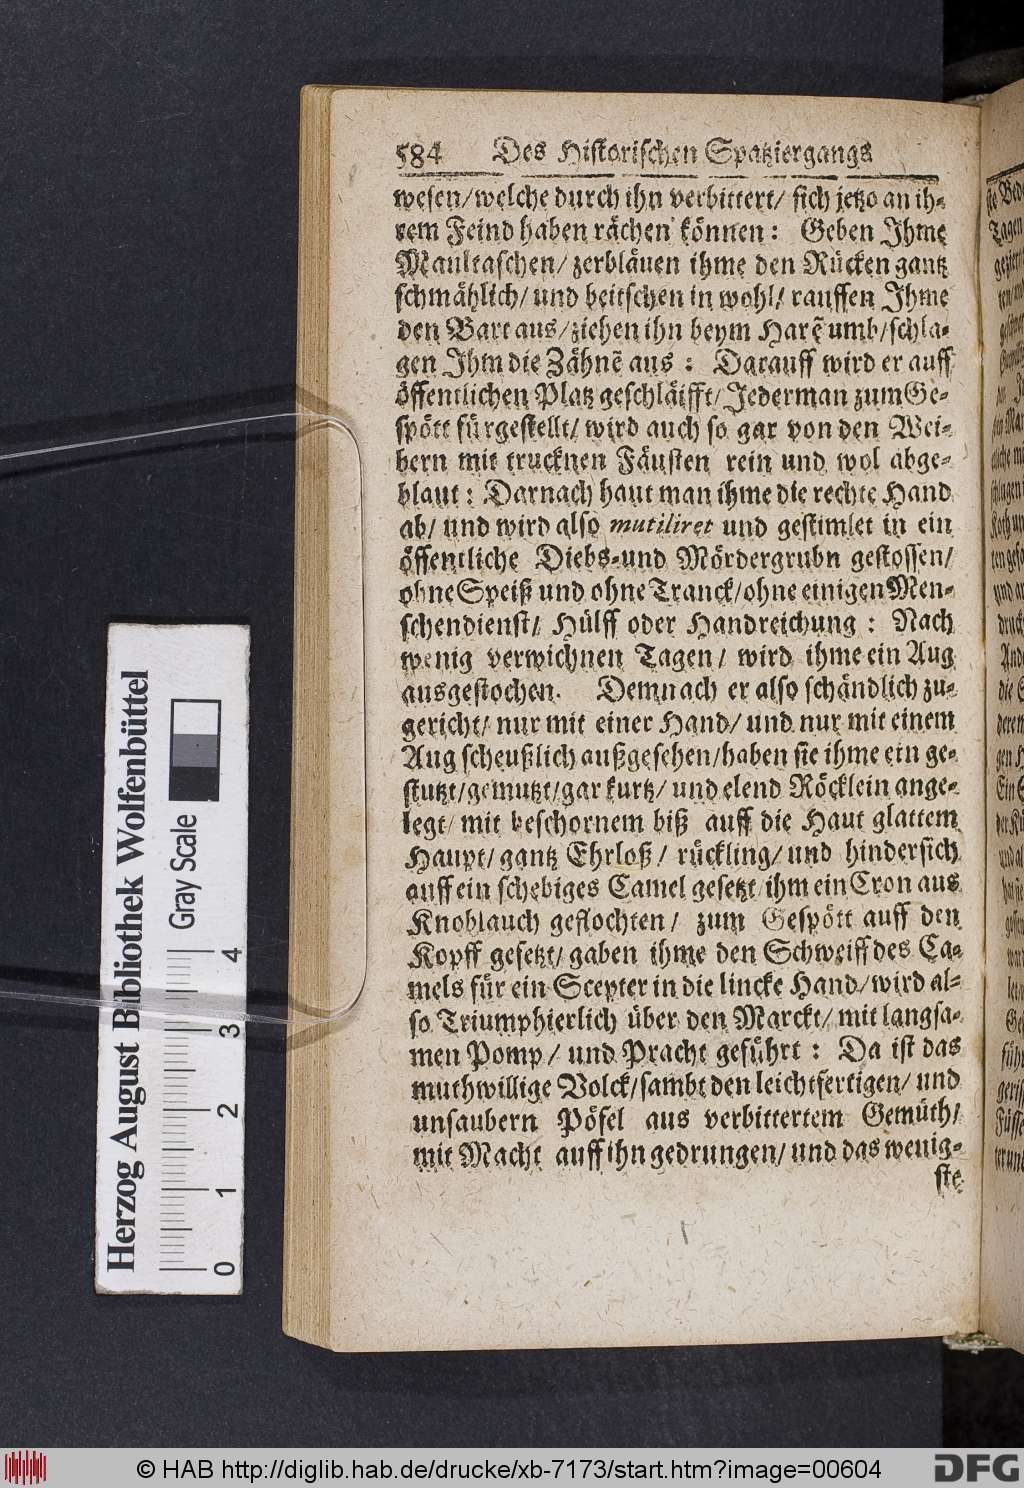 584 Des Historischen Spatziergangs
wesen/welche durch ihn verbittert/ sich jetzo an ih-
rem Feind haben rächen können: Geben Ihme
Maultaschen/ zerbläuen ihme den Rücken gantz
schmählich/ und beitschen in wohl/ rauffen Ihme
den Bart aus/ziehen ihn beym Harẽ umb/schla-
gen Ihm die Zähnẽ aus: Darauff wird er auff
öffentlichen Platz geschläifft/ Jederman zum Ge-
spött fürgestellt/ wird auch so gar von den Wei-
bern mit trucknen Fäusten rein und wol abge-
blaut: Darnach haut man ihme die rechte Hand
ab/ und wird also mutiliret und gestimlet in ein
öffentliche Diebs-und Mördergrubn gestossen/
ohne Speiß und ohne Tranck/ohne einigen Men-
schendienst/ Hülff oder Handreichung: Nach
wenig verwichnen Tagen/ wird ihme ein Aug
ausgestochen. Demnach er also schändlich zu-
gericht/ nur mit einer Hand/ und nur mit einem
Aug scheußlich außgesehen/haben sie ihme ein ge-
stutzt/gemutzt/gar kurtz/ und elend Röcklein ange-
legt/ mit beschornem biß auff die Haut glattem
Haupt/ gantz Ehrloß/ rückling/ und hindersich
auff ein schebiges Camel gesetzt/ ihm ein Cron aus
Knoblauch geflochten/ zum Gespött auff den
Kopff gesetzt/ gaben ihme den Schweiff des Ca-
mels für ein Scepter in die lincke Hand/ wird al-
so Triumphierlich über den Marckt/ mit langsa-
men Pomp/ und Pracht geführt: Da ist das
muthwillige Volck/sambt den leichtfertigen/ und
unsaubern Pöfel aus verbittertem Gemüth/
mit Macht auff ihn gedrungen/ und das wenig-
ste
Herzog August Bibliothek Wolfenbüttel
Gray Scale
0 1 2 3 4
© HAB http://diglib.hab.de/drucke/xb-7173/start.htm?image=00604
DFG